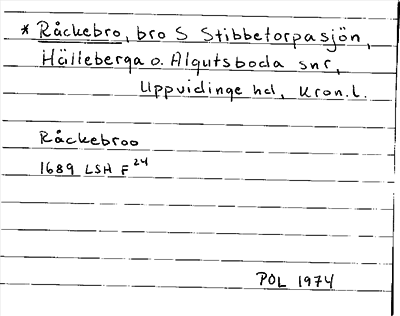 * Råckebro, bro S Stibbetorpasjön,
Hälleberga o. Algutsboda snr,
Uppvidinge hd, Kron.l.
Råckebroo
1689 LSH F 24
POL 1974